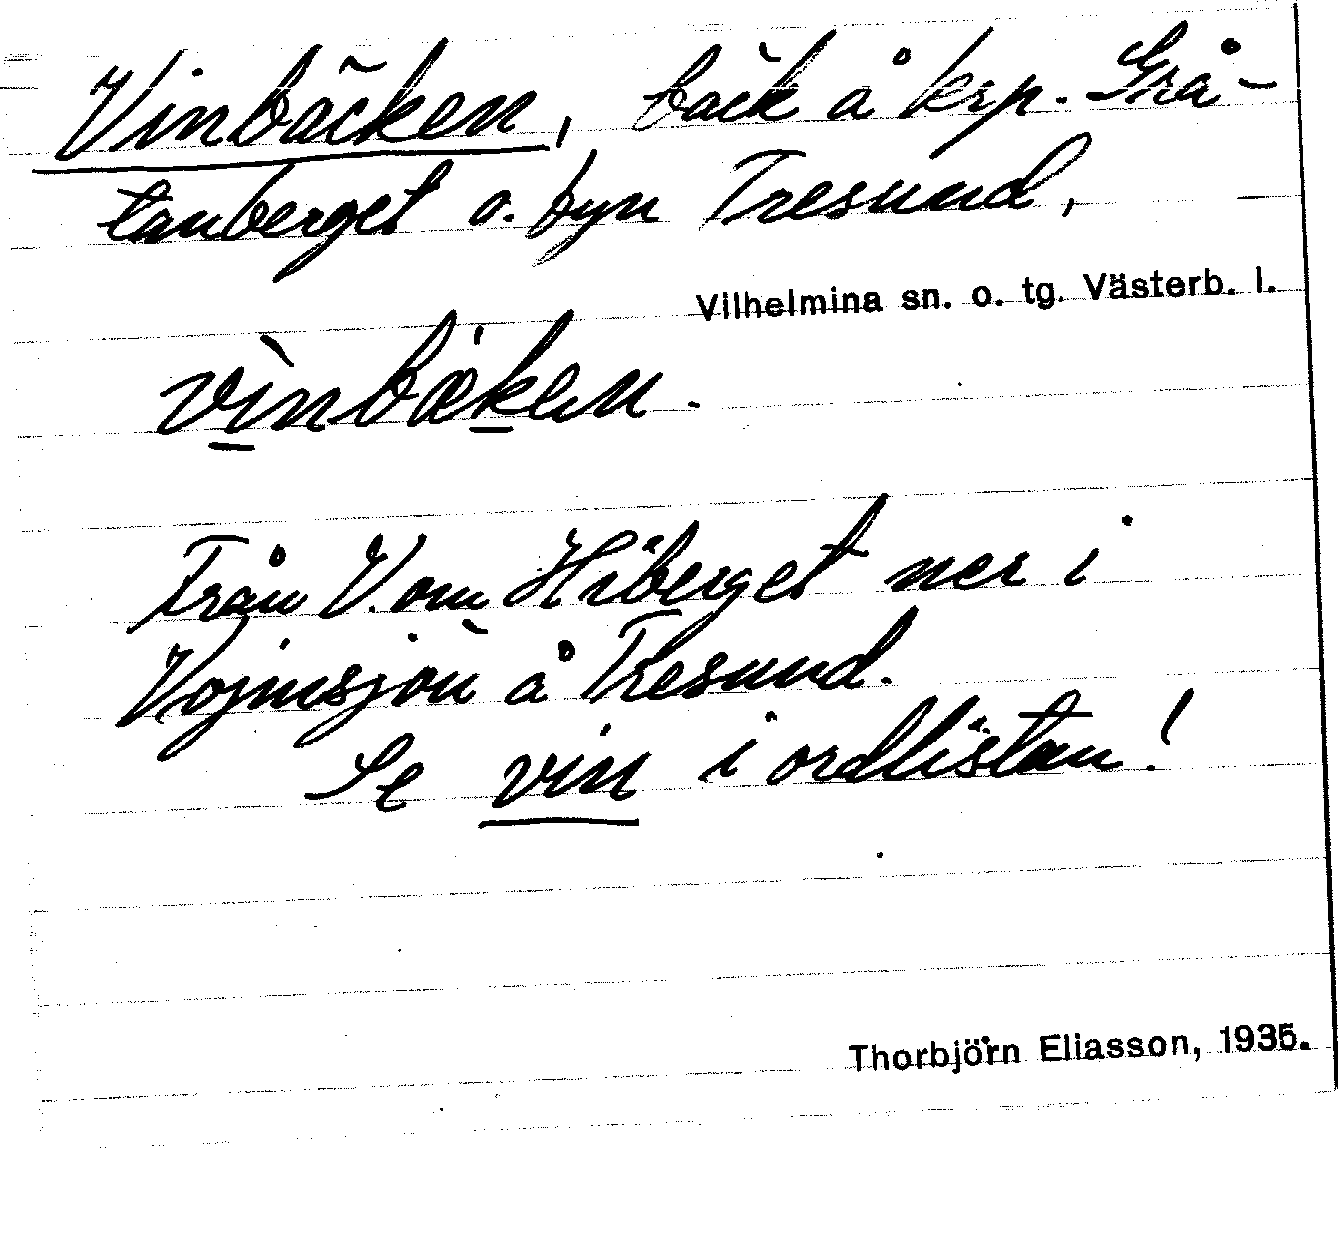 Vinbäcken, bäck å krp. Grå-
tanberget o. byn Tresund,
Vilhelmina sn. o. tg. Västerb. l.
vìnbæken.
Från V. om Håberget ner i
Vojmsjön å Tresund.
Se vin i ordlistan!
Thorbjörn Eliasson, 1935.